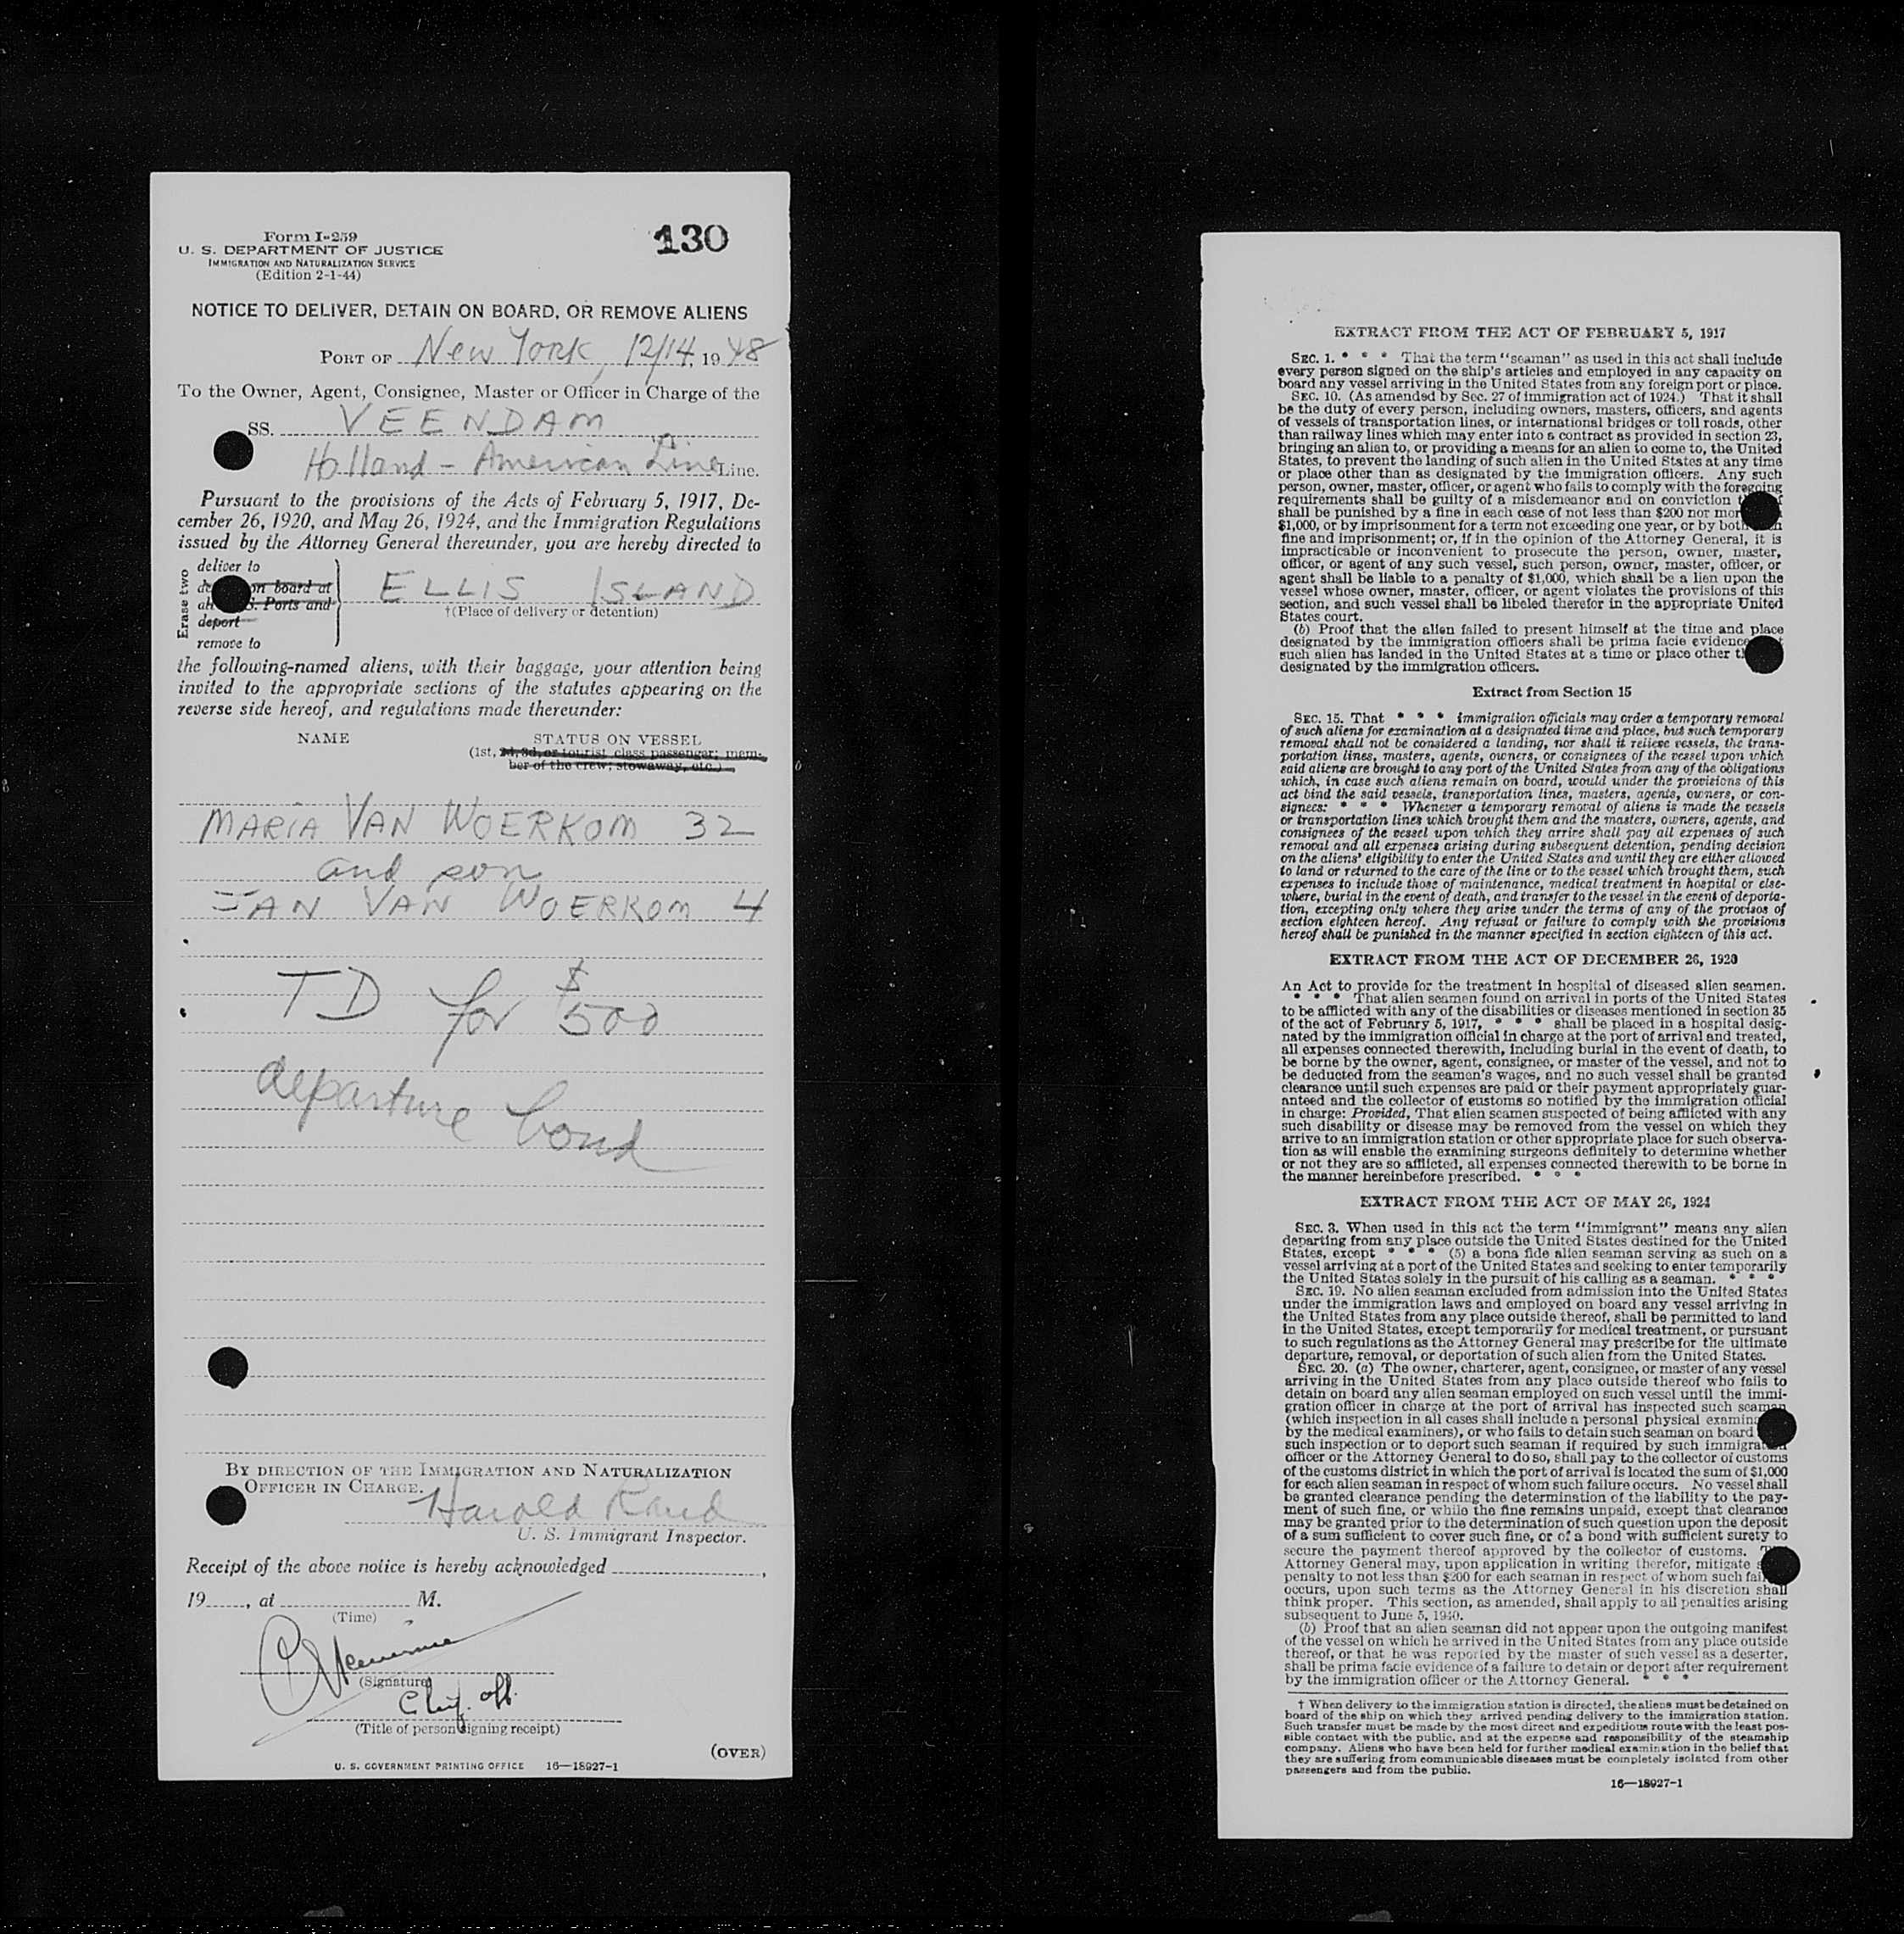 Form I-259
U. S. DEPARTMENT OF JUSTICE
IMMIGRATION AND NATURALIZATION SERVICE
(Edition 2-1-44)
130
NOTICE TO DELIVER, DETAIN ON BOARD, OR REMOVE ALIENS
PORT OF New York, 12/14, 1948
To the Owner, Agent, Consignee, Master or Officer in Charge of the
SS. VEENDAM
Holland - American Line Line.
Pursuant to the provisions of the Acts of February 5, 1917, De-
cember 26, 1920, and May 26, 1924, and the Immigration Regulations
issued by the Attorney General thereunder, you are hereby directed to
Erase two
deliver to
on board at
Ports and
deport
remove to
ELLIS ISLAND
†(Place of delivery or detention)
the following-named aliens, with their baggage, your attention being
invited to the appropriate sections of the statutes appearing on the
reverse side hereof, and regulations made thereunder:
NAME STATUS ON VESSEL
(1st, 2d, 3d, or tourist class passenger; mem-
ber of the crew; stowaway, etc.)
MARIA VAN WOERKOM 32
and son
JAN VAN WOERKOM 4
TD for $500
departure bond
BY DIRECTION OF THE IMMIGRATION AND NATURALIZATION
OFFICER IN CHARGE.
Harold Rand
U. S. Immigrant Inspector.
Receipt of the above notice is hereby acknowledged ,
19 , at M.
(Time)
(Signature)
off.
(Title of person signing receipt)
(OVER)
U. S. GOVERNMENT PRINTING OFFICE 16—18927-1
EXTRACT FROM THE ACT OF FEBRUARY 5, 1917
SEC. 1. * * * That the term "seaman" as used in this act shall include
every person signed on the ship's articles and employed in any capacity on
board any vessel arriving in the United States from any foreign port or place.
SEC. 10. (As amended by Sec. 27 of immigration act of 1924.) That it shall
be the duty of every person, including owners, masters, officers, and agents
of vessels of transportation lines, or international bridges or toll roads, other
than railway lines which may enter into a contract as provided in section 23,
bringing an alien to, or providing a means for an alien to come to, the United
States, to prevent the landing of such alien in the United States at any time
or place other than as designated by the immigration officers. Any such
person, owner, master, officer, or agent who fails to comply with the foregoing
requirements shall be guilty of a misdemeanor and on conviction
shall be punished by a fine in each case of not less than $200 nor
$1,000, or by imprisonment for a term not exceeding one year, or by both
fine and imprisonment; or, if in the opinion of the Attorney General, it is
impracticable or inconvenient to prosecute the person, owner, master,
officer, or agent of any such vessel, such person, owner, master, officer, or
agent shall be liable to a penalty of $1,000, which shall be a lien upon the
vessel whose owner, master, officer, or agent violates the provisions of this
section, and such vessel shall be libeled therefor in the appropriate United
States court.
(b) Proof that the alien failed to present himself at the time and place
designated by the immigration officers shall be prima facie evidence
such alien has landed in the United States at a time or place other
designated by the immigration officers.
Extract from Section 15
SEC. 15. That * * * immigration officials may order a temporary removal
of such aliens for examination at a designated time and place, but such temporary
removal shall not be considered a landing, nor shall it relieve vessels, the trans-
portation lines, masters, agents, owners, or consignees of the vessel upon which
said aliens are brought to any port of the United States from any of the obligations
which, in case such aliens remain on board, would under the provisions of this
act bind the said vessels, transportation lines, masters, agents, owners, or con-
signees: * * * Whenever a temporary removal of aliens is made the vessels
or transportation lines which brought them and the masters, owners, agents, and
consignees of the vessel upon which they arrive shall pay all expenses of such
removal and all expenses arising during subsequent detention, pending decision
on the aliens' eligibility to enter the United States and until they are either allowed
to land or returned to the care of the line or to the vessel which brought them, such
expenses to include those of maintenance, medical treatment in hospital or else-
where, burial in the event of death, and transfer to the vessel in the event of deporta-
tion, excepting only where they arise under the terms of any of the provisos of
section eighteen hereof. Any refusal or failure to comply with the provisions
hereof shall be punished in the manner specified in section eighteen of this act.
EXTRACT FROM THE ACT OF DECEMBER 26, 1920
An Act to provide for the treatment in hospital of diseased alien seamen.
* * * That alien seamen found on arrival in ports of the United States
to be afflicted with any of the disabilities or diseases mentioned in section 35
of the act of February 5, 1917, * * * shall be placed in a hospital desig-
nated by the immigration official in charge at the port of arrival and treated,
all expenses connected therewith, including burial in the event of death, to
be borne by the owner, agent, consignee, or master of the vessel, and not to
be deducted from the seaman's wages, and no such vessel shall be granted
clearance until such expenses are paid or their payment appropriately guar-
anteed and the collector of customs so notified by the immigration official
in charge: Provided, That alien seamen suspected of being afflicted with any
such disability or disease may be removed from the vessel on which they
arrive to an immigration station or other appropriate place for such observa-
tion as will enable the examining surgeons definitely to determine whether
or not they are so afflicted, all expenses connected therewith to be borne in
the manner hereinbefore prescribed. * * *
EXTRACT FROM THE ACT OF MAY 26, 1924
SEC. 3. When used in this act the term "immigrant" means any alien
departing from any place outside the United States destined for the United
States, except * * * (5) a bona fide alien seaman serving as such on a
vessel arriving at a port of the United States and seeking to enter temporarily
the United States solely in the pursuit of his calling as a seaman. * * *
SEC. 19. No alien seaman excluded from admission into the United States
under the immigration laws and employed on board any vessel arriving in
the United States from any place outside thereof, shall be permitted to land
in the United States, except temporarily for medical treatment, or pursuant
to such regulations as the Attorney General may prescribe for the ultimate
departure, removal, or deportation of such alien from the United States.
SEC. 20. (a) The owner, charterer, agent, consignee, or master of any vessel
arriving in the United States from any place outside thereof who fails to
detain on board any alien seaman employed on such vessel until the immi-
gration officer in charge at the port of arrival has inspected such seaman
(which inspection in all cases shall include a personal physical
by the medical examiners), or who fails to detain such seaman on board
such inspection or to deport such seaman if required by such immigration
officer or the Attorney General to do so, shall pay to the collector of customs
of the customs district in which the port of arrival is located the sum of $1,000
for each alien seaman in respect of whom such failure occurs. No vessel shall
be granted clearance pending the determination of the liability to the pay-
ment of such fine, or while the fine remains unpaid, except that clearance
may be granted prior to the determination of such question upon the deposit
of a sum sufficient to cover such fine, or of a bond with sufficient surety to
secure the payment thereof approved by the collector of customs.
Attorney General may, upon application in writing therefor, mitigate
penalty to not less than $200 for each seaman in respect of whom such
occurs, upon such terms as the Attorney General in his discretion shall
think proper. This section, as amended, shall apply to all penalties arising
subsequent to June 5, 1940.
(b) Proof that an alien seaman did not appear upon the outgoing manifest
of the vessel on which he arrived in the United States from any place outside
thereof, or that he was reported by the master of such vessel as a deserter,
shall be prima facie evidence of a failure to detain or deport after requirement
by the immigration officer or the Attorney General. * * *
† When delivery to the immigration station is directed, the aliens must be detained on
board of the ship on which they arrived pending delivery to the immigration station.
Such transfer must be made by the most direct and expeditious route with the least pos-
sible contact with the public, and at the expense and responsibility of the steamship
company. Aliens who have been held for further medical examination in the belief that
they are suffering from communicable diseases must be completely isolated from other
passengers and from the public.
16—18927-1